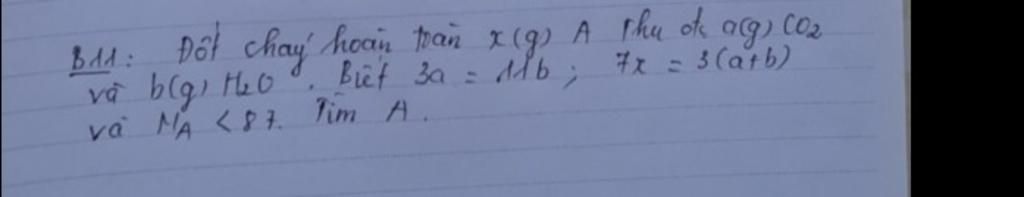 B11: Đốt cháy hoàn toàn x(g) A thu đc a(g) CO2
và b(g) H2O. Biết 3a = 11b; 7x = 3(a+b)
và MA < 87. Tìm A.